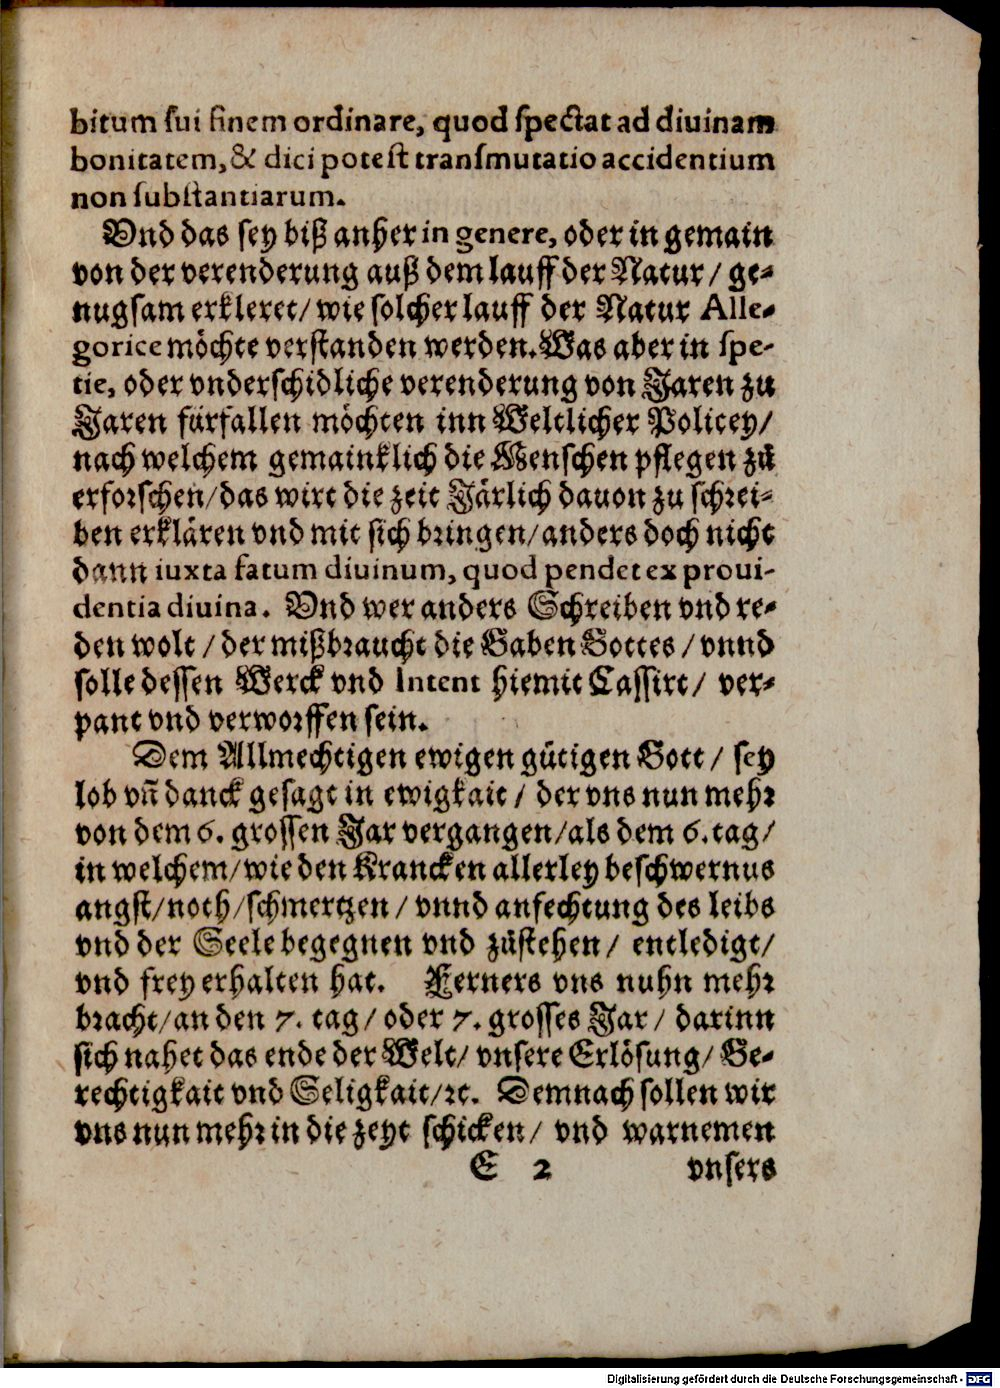 bitum sui finem ordinare, quod spectat ad diuinam
bonitatem, & dici potest transmutatio accidentium
non substantiarum.
Vnd das sey biß anher in genere, oder in gemain
von der verenderung auß dem lauff der Natur / ge-
nugsam erkleret / wie solcher lauff der Natur Alle-
gorice möchte verstanden werden. Was aber in spe-
tie, oder vnderschidliche verenderung von Jaren zu
Jaren fürfallen möchten inn Weltlicher Policey /
nach welchem gemainklich die Menschen pflegen zů
erforschen / das wirt die zeit Järlich dauon zu schrei-
ben erklären vnd mit sich bringen / anders doch nicht
dann iuxta fatum diuinum, quod pendet ex proui-
dentia diuina. Vnd wer anders Schreiben vnd re-
den wolt / der mißbraucht die Gaben Gottes / vnnd
solle dessen Werck vnd Intent hiemit Cassirt / ver-
pant vnd verworffen sein.
Dem Allmechtigen ewigen gütigen Gott / sey
lob vñ danck gesagt in ewigkait / der vns nun mehr
von dem 6. grossen Jar vergangen / als dem 6. tag /
in welchem / wie den Krancken allerley beschwernus
angst / noth / schmertzen / vnnd anfechtung des leibs
vnd der Seele begegnen vnd zůstehen / entledigt /
vnd frey erhalten hat. Ferners vns nuhn mehr
bracht / an den 7. tag / oder 7. grosses Jar / darinn
sich nahet das ende der Welt / vnsere Erlösung / Ge-
rechtigkait vnd Seligkait / ꝛc. Demnach sollen wir
vns nun mehr in die zeyt schicken / vnd warnemen
E 2 vnsers
Digitalisierung gefördert durch die Deutsche Forschungsgemeinschaft - DFG